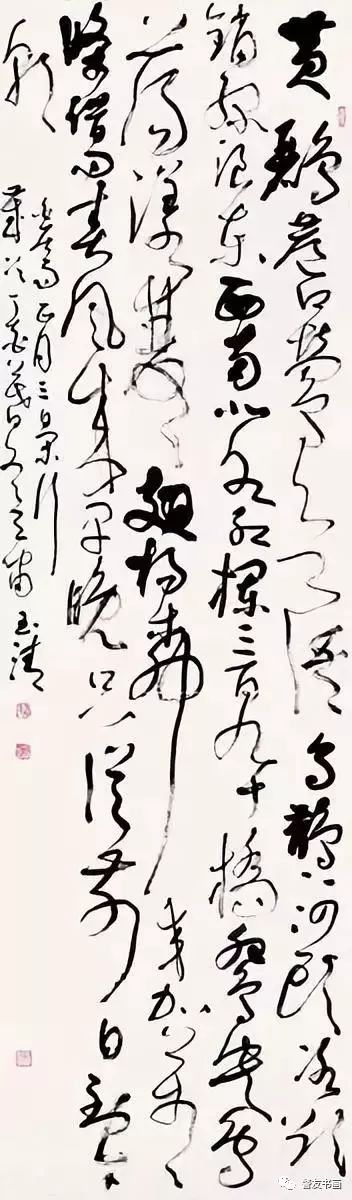 黄鹂巷口莺欲语乌鹊河头冰欲
销绿浪东西南北水红栏三百九十桥鸳鸯
荡漾双双翅杨柳交加万万
条借问春风来早晚只从前日到今
朝
白居易正月三日闲行
岁次丁酉 玉清
友书画